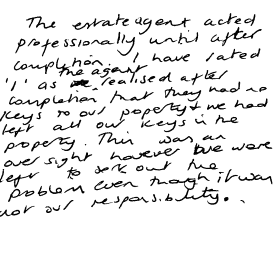 The estate agent acted
professionally until after
completion. I have rated
'1' as the agent realised after
completion that they had no
keys to our poperty & we had
left all our keys in the
poperty. This was an
over sight however we were
left to sork out the
problem even though it was
not our responsibility.